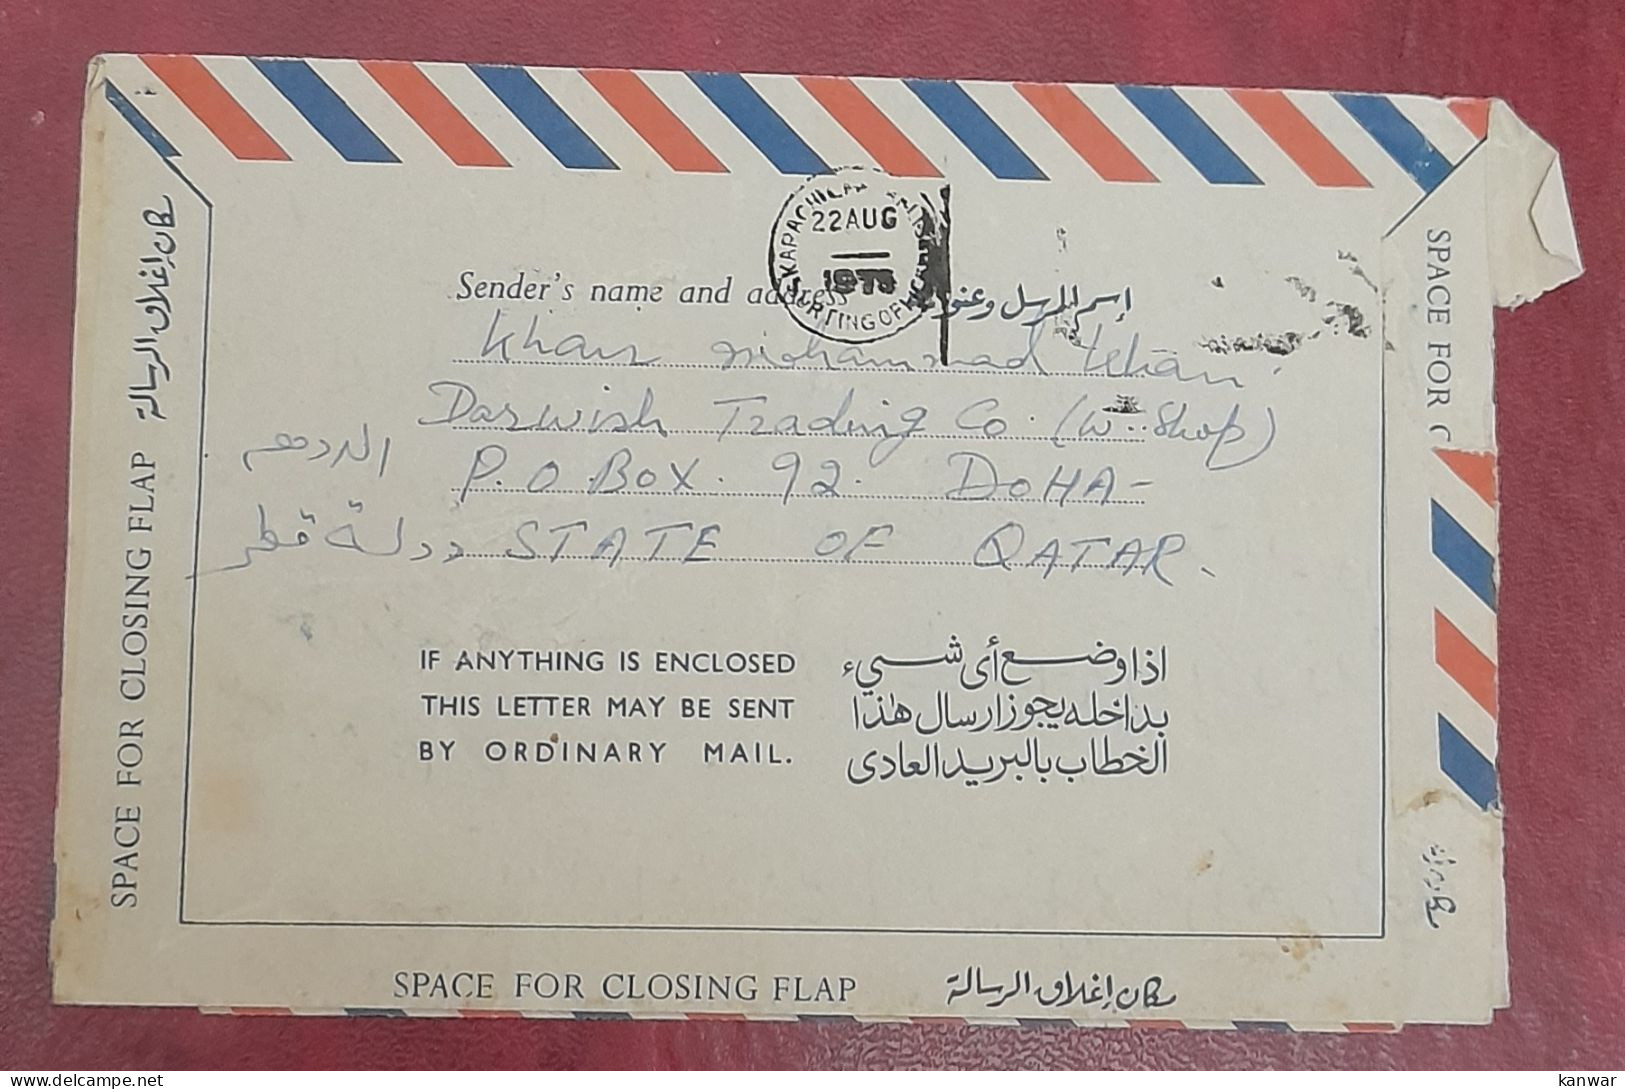 22 AUG
Sender's name and address اسم المرسل وعنوانه
Khan mohammad Khan
Darwish Trading Co. (W. Shop)
P.O. Box. 92. DOHA-
الدوحه
STATE OF QATAR.
دولة قطر
IF ANYTHING IS ENCLOSED
THIS LETTER MAY BE SENT
BY ORDINARY MAIL.
اذا وضع أى شيء
بداخله يجوز ارسال هذا
الخطاب بالبريد العادى
SPACE FOR CLOSING FLAP مكان إغلاق الرسالة
SPACE FOR CLOSING FLAP مكان إغلاق الرسالة
SPACE FOR
kanwar
delcampe.net